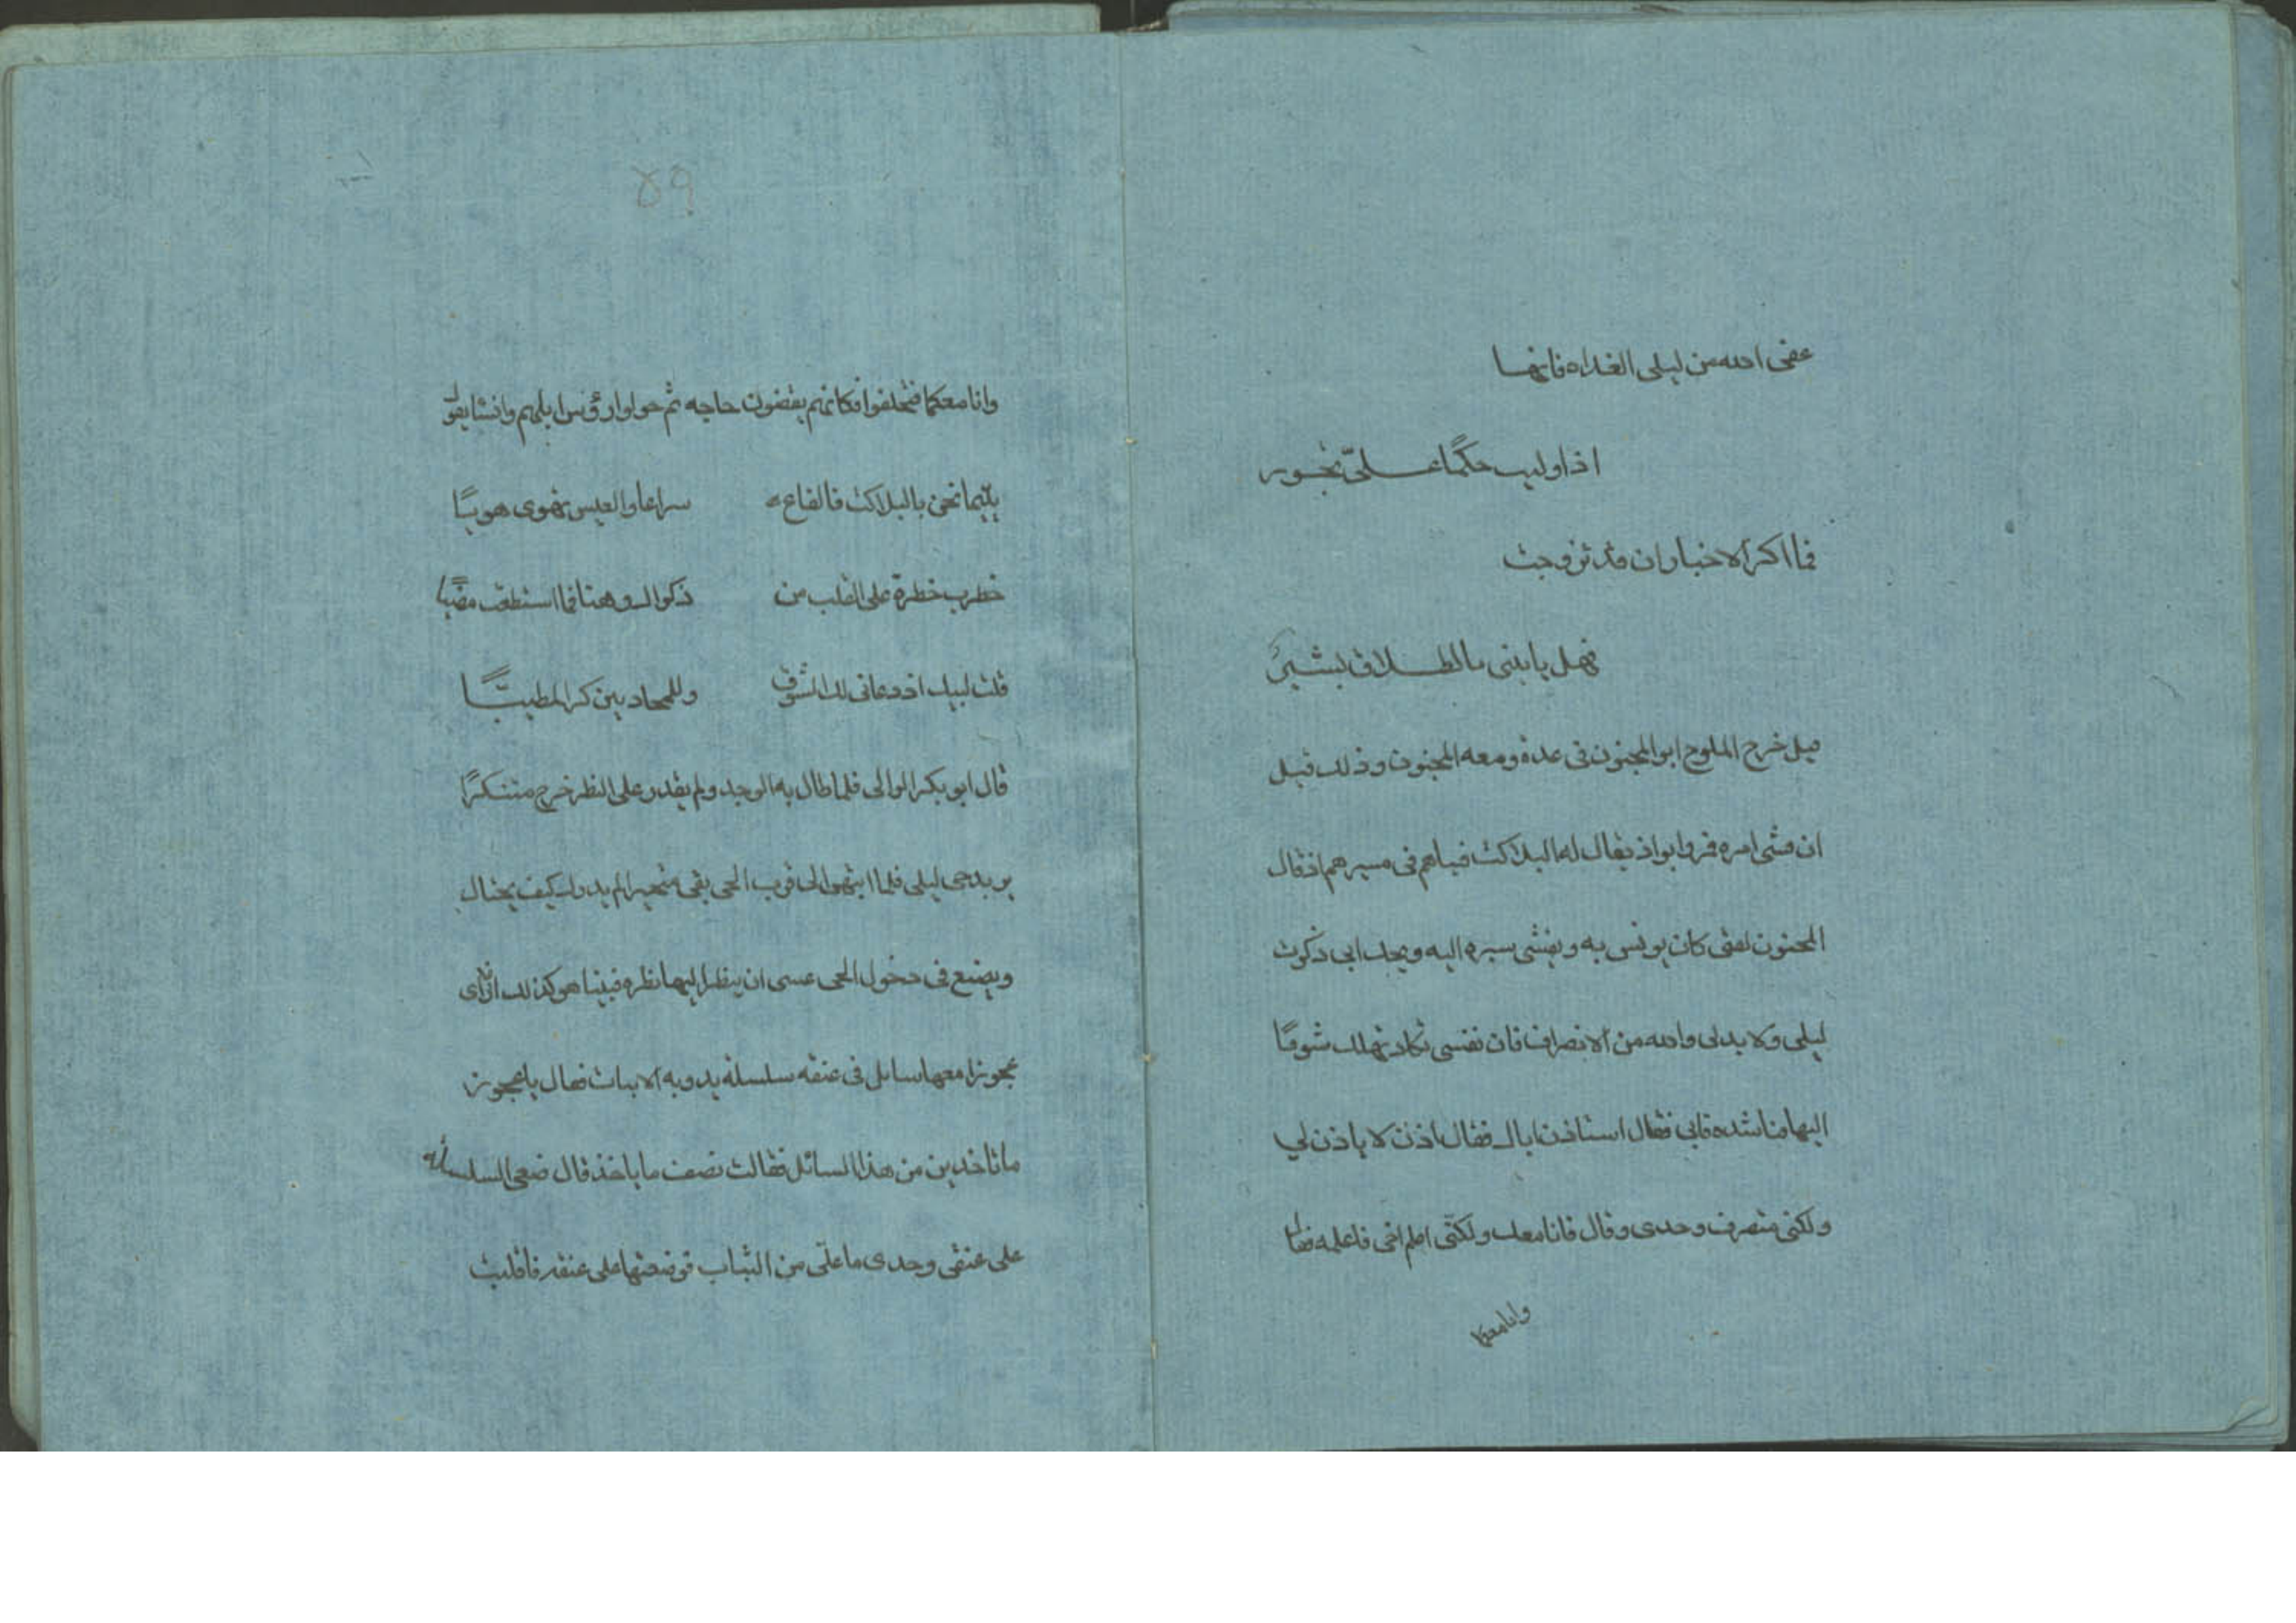 عفى الله من ليلى الغداه فانها
اذا وليت حكمًا على تجور
فما اكثر الاخبار ان قد تزوجت
فهل يا بنى بالطلاق بشير
قيل خرج الملوح ابو المجنون فى عدة ومعه المجنون وذلك قبل
ان فشى امره فمروا بواد يقال له البلاكث فبيناهم فى مسيرهم اذ قال
المجنون لفتى كان يونس به ويفشى سره اليه ويحك انى ذكرت
ليلى ولا بد لى والله من الانصراف فان نفسى تكاد تهلك شوقًا
اليها فناشده فابى فقال استاذن اباك فقال اذن لا ياذن لي
ولكنى منصرف وحدى وقال فانا معك ولكنى اعلم اخى فاعلمه فقال
وانا معكما
٥٩
وانا معكما فتخلفوا فكانهم يقضون حاجه ثم حولوا رؤس ابلهم وانشا يقول
بينما نحن بالبلاكث فالقاع سراعا والعيس تهوى هويًا
خطرت خطرة على القلب من ذكراك وهنا فما استطعت مضيًا
قلت لبيك اذ دعانى لك الشوق وللحاديين كر المطيا
قال ابو بكر الوالى فلما طال به الوجد ولم يقدر على النظر خرج متنكرًا
يريد حى ليلى فلما انتهوا الى قرب الحى بقى متحيرا لم يدر كيف يحتال
ويصنع فى دخول الحى عسى ان ينظر اليها نظره فبينا هو كذلك اذ راى
عجوزا معها سايل فى عنقه سلسلة يدور به الابيات فقال يا عجوز
ما تاخذين من هذا السائل فقالت نصف ما ياخذ قال ضعى السلسله
على عنقى وخدى ما علي من الثياب فوضعتها على عنقه فاقلبت